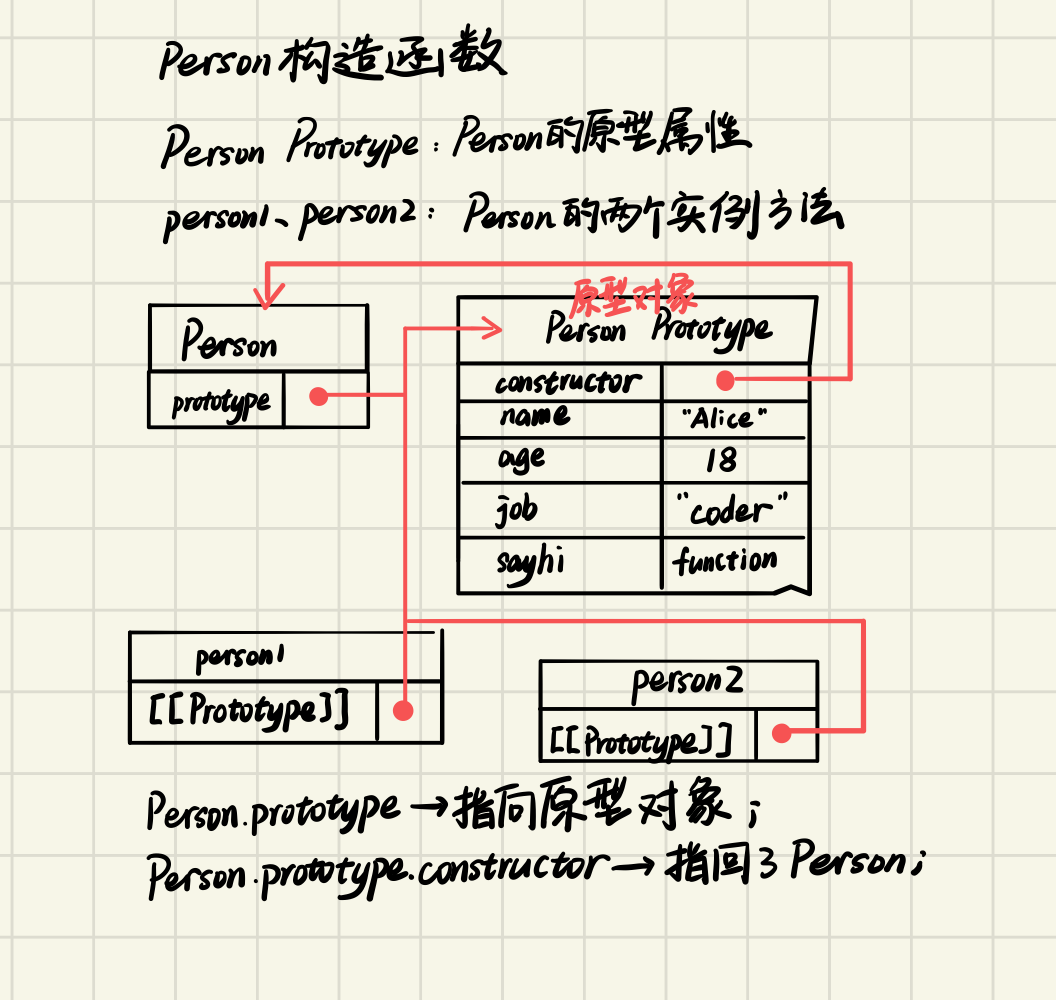 Person构造函数
Person Prototype：Person的原型属性
person1、person2：Person的两个实例方法
原型对象
Person
Person Prototype
prototype
constructor
name "Alice"
age 18
job "coder"
sayhi function
person1
[[Prototype]]
person2
[[Prototype]]
Person.prototype→指向原型对象；
Person.prototype.constructor→指回了Person；